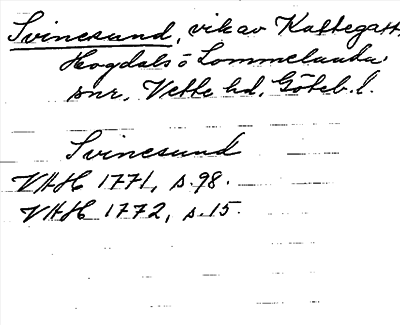 Svinesund, vik av Kattegatt,
Hogdals o Lommelanda
snr, Vette hd, Göteb. l.
Svinesund
VHH 1771, s. 98.
VHH 1772, s. 15.